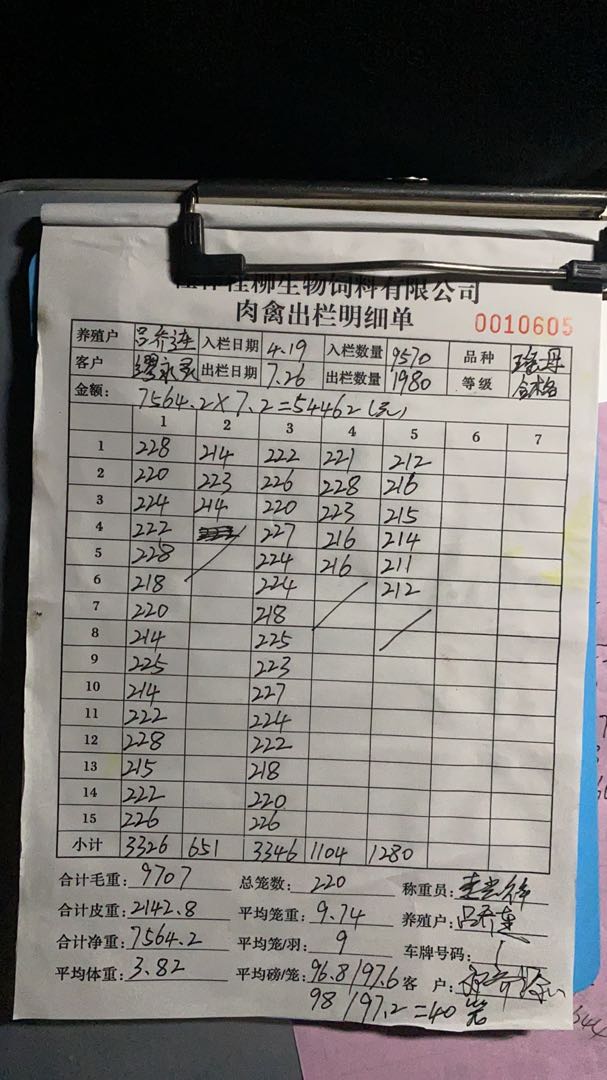 桂柳生物饲料有限公司
肉禽出栏明细单 0010605
养殖户 入栏日期 4.19 入栏数量 9570 品种
客户 出栏日期 7.26 出栏数量 1980 等级 合格
金额: 7564.2×7.2=54462(元)
1 2 3 4 5 6 7
1 228 214 222 221 212
2 220 223 226 228 216
3 224 214 220 223 215
4 222 227 216 214
5 228 224 216 211
6 218 224 212
7 220 218
8 214 225
9 225 223
10 214 227
11 222 224
12 228 222
13 215 218
14 222 220
15 226 226
小计 3326 651 3346 1104 1280
合计毛重: 9707 总笼数: 220 称重员:
合计皮重: 2142.8 平均笼重: 9.74 养殖户:
合计净重: 7564.2 平均笼/羽: 9 车牌号码:
平均体重: 3.82 平均磅/笼: 96.8/97.6 客 户:
98/97.2=40笼